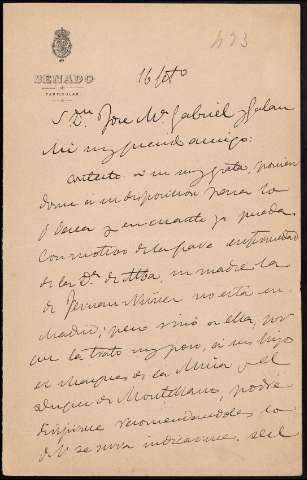 423
SENADO
PARTICULAR
16 Set.
Sr. D. José Mª Gabriel y Galan
Mi muy querido amigo:
Contesto a su muy grata, ponien
dome a su disposicion para lo
q desea y en cuanto yo pueda.
Con motivo de la grave enfermedad
de la Dª de Alba, su madre la
de Fernan Nuñez no está en
Madrid; pero sino a ella, por
que la trato muy poco, a su hijo
el Marques de la Mina y el
Duque de Montellano, podré
dirigirme recomendandoles lo
q V se sirva indicarme, si el